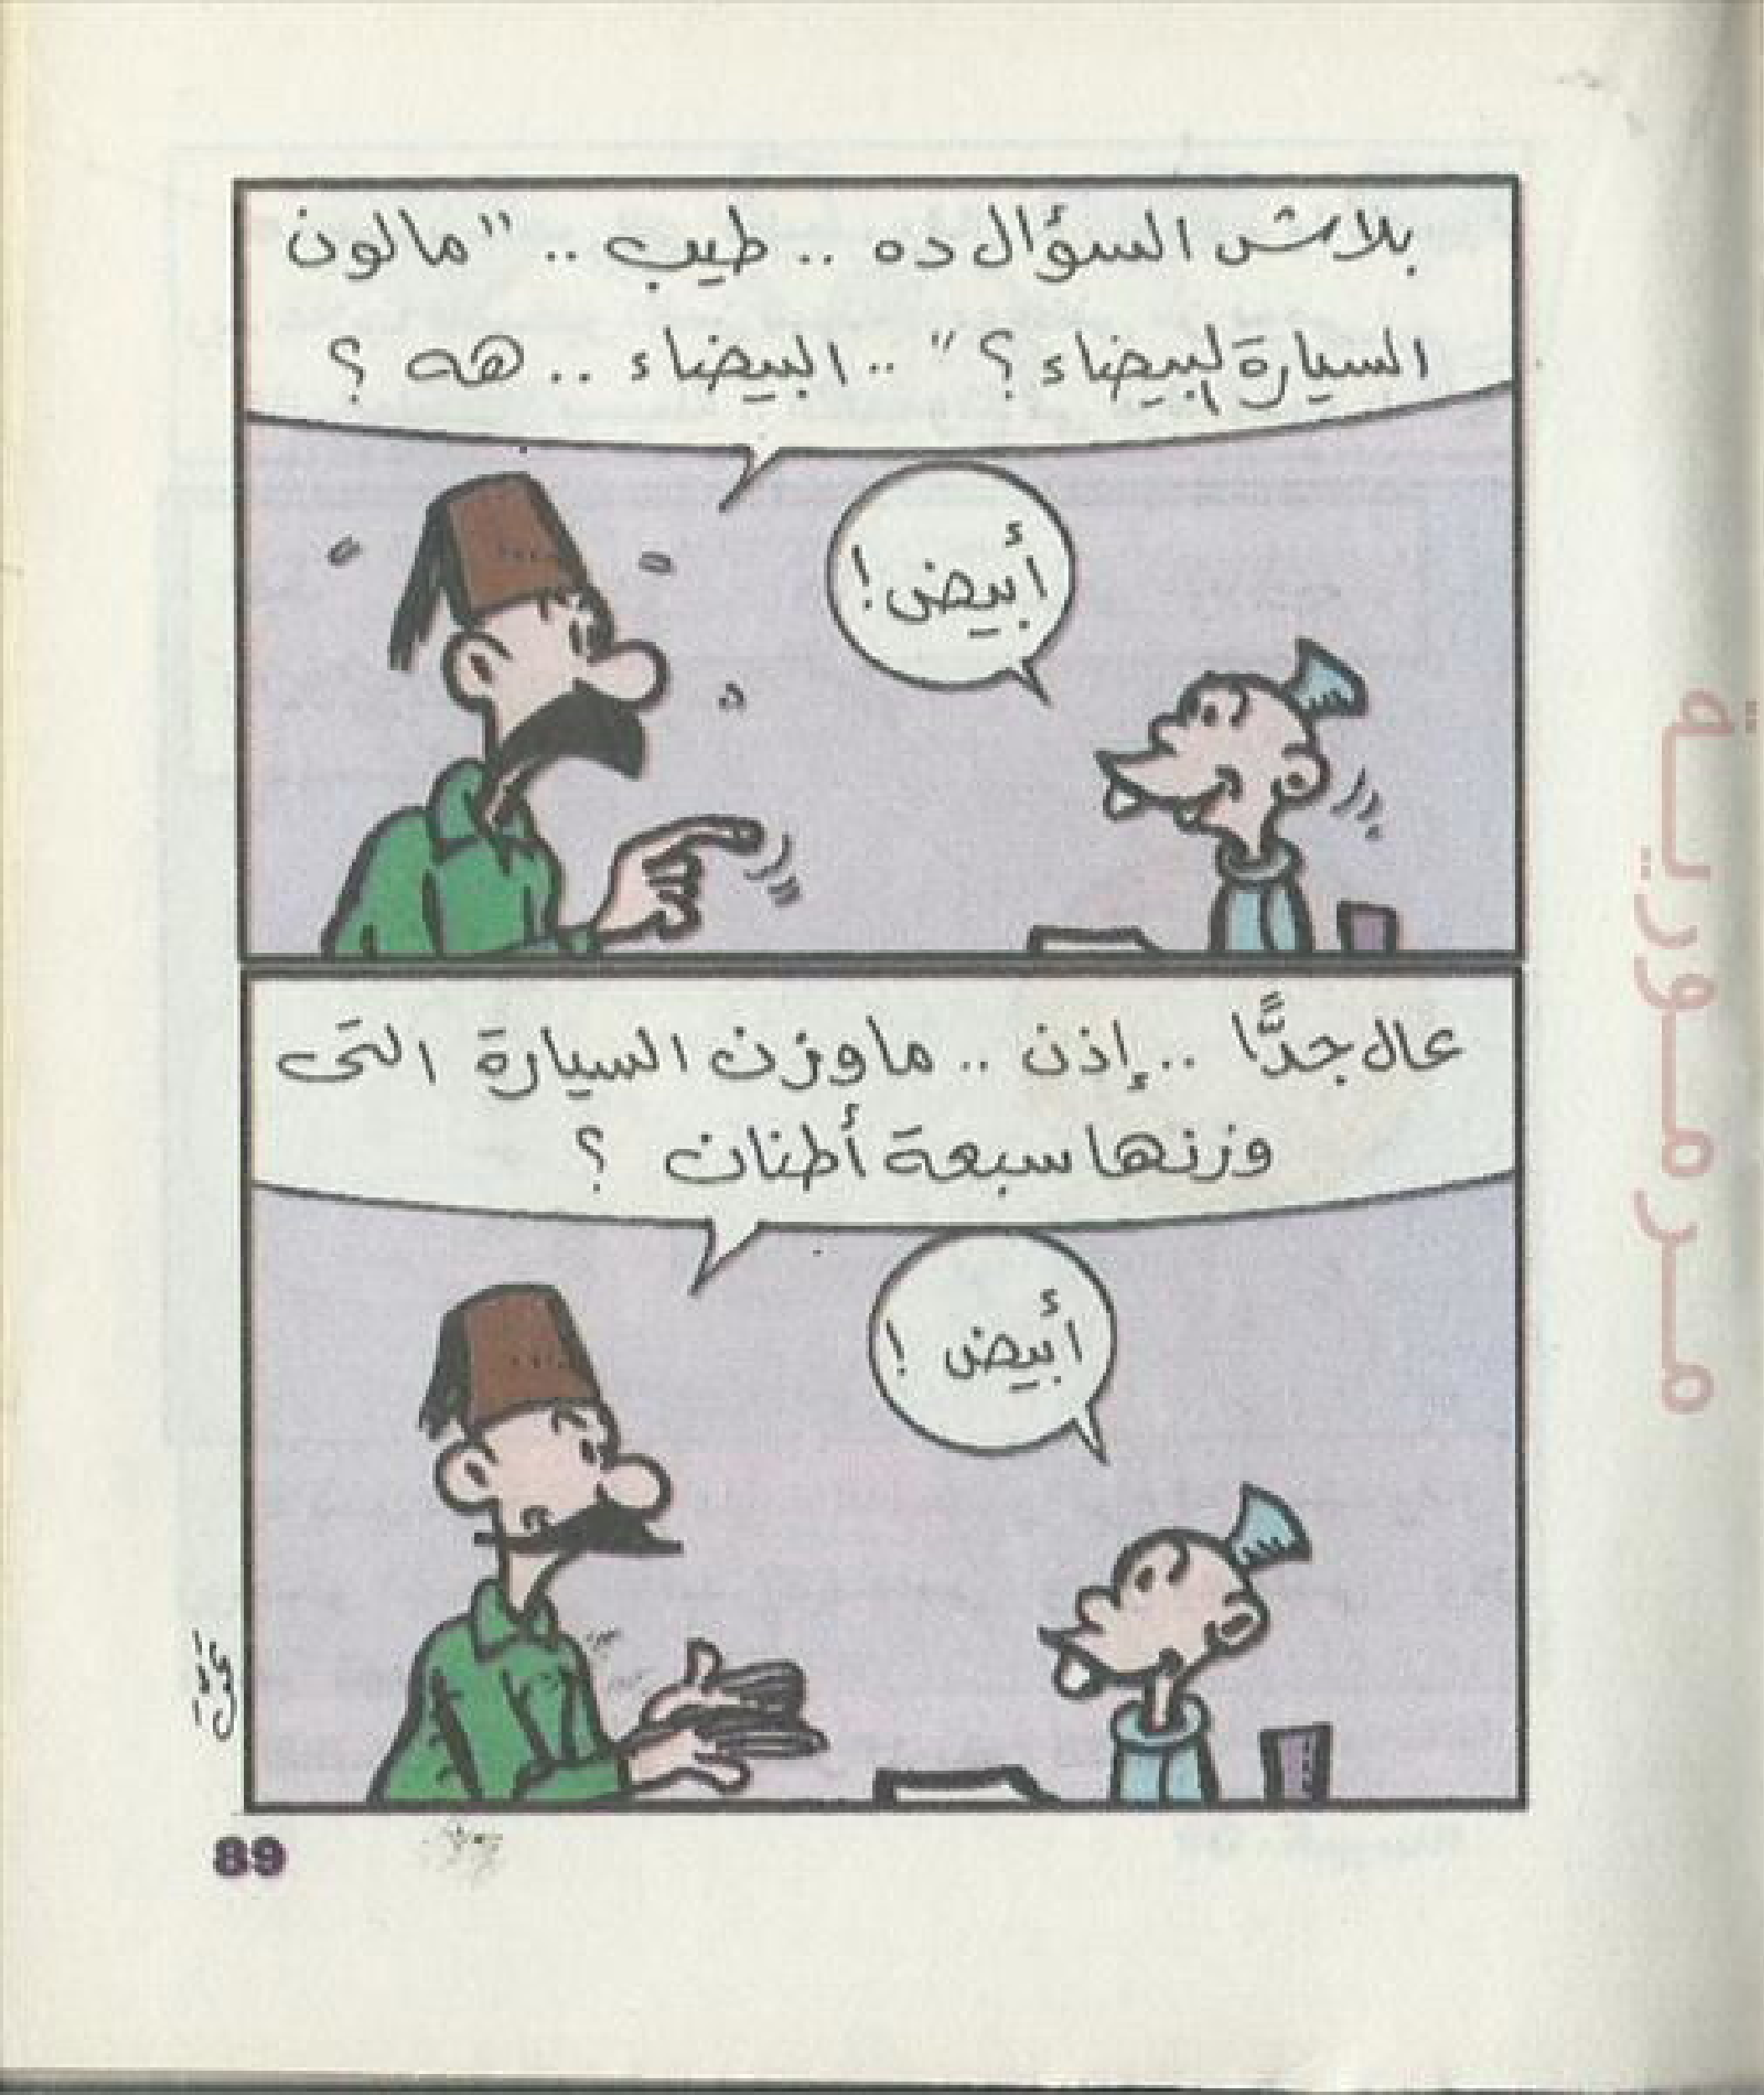 بلاش السؤال ده .. طيب .. "مالون
السيارة البيضاء ؟" .. البيضاء .. هه ؟
أبيض!
عال جدًّا .. إذن .. ماوزن السيارة التى
وزنها سبعة أطنان ؟
أبيض !
89
مرمورية